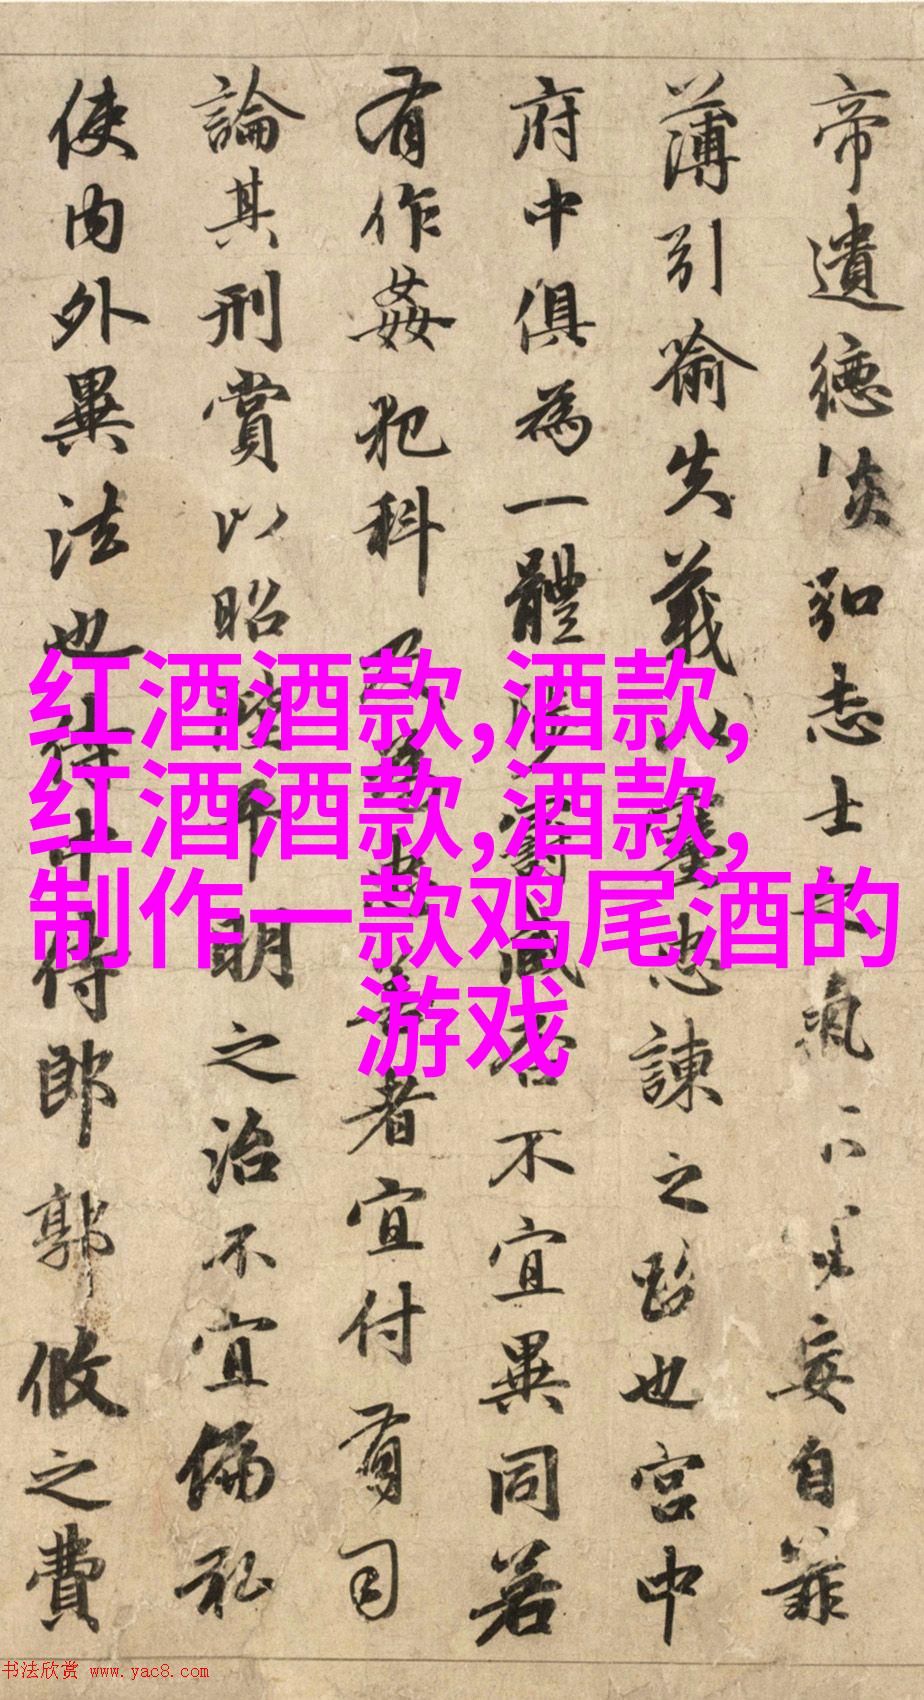 红酒酒款,酒款,
红酒酒款,酒款,
制作一款鸡尾酒的
游戏
帝遺德恢弘志士之氣不宜妄自菲
薄引喻失義以塞忠諫之路也宮中
府中俱為一體陟罰臧否不宜異同若
有作姦犯科及為忠善者宜付有司
論其刑賞以昭陛平明之治不宜偏私
使內外異法也侍中侍郎郭攸之費
书法欣赏 www.yac8.com